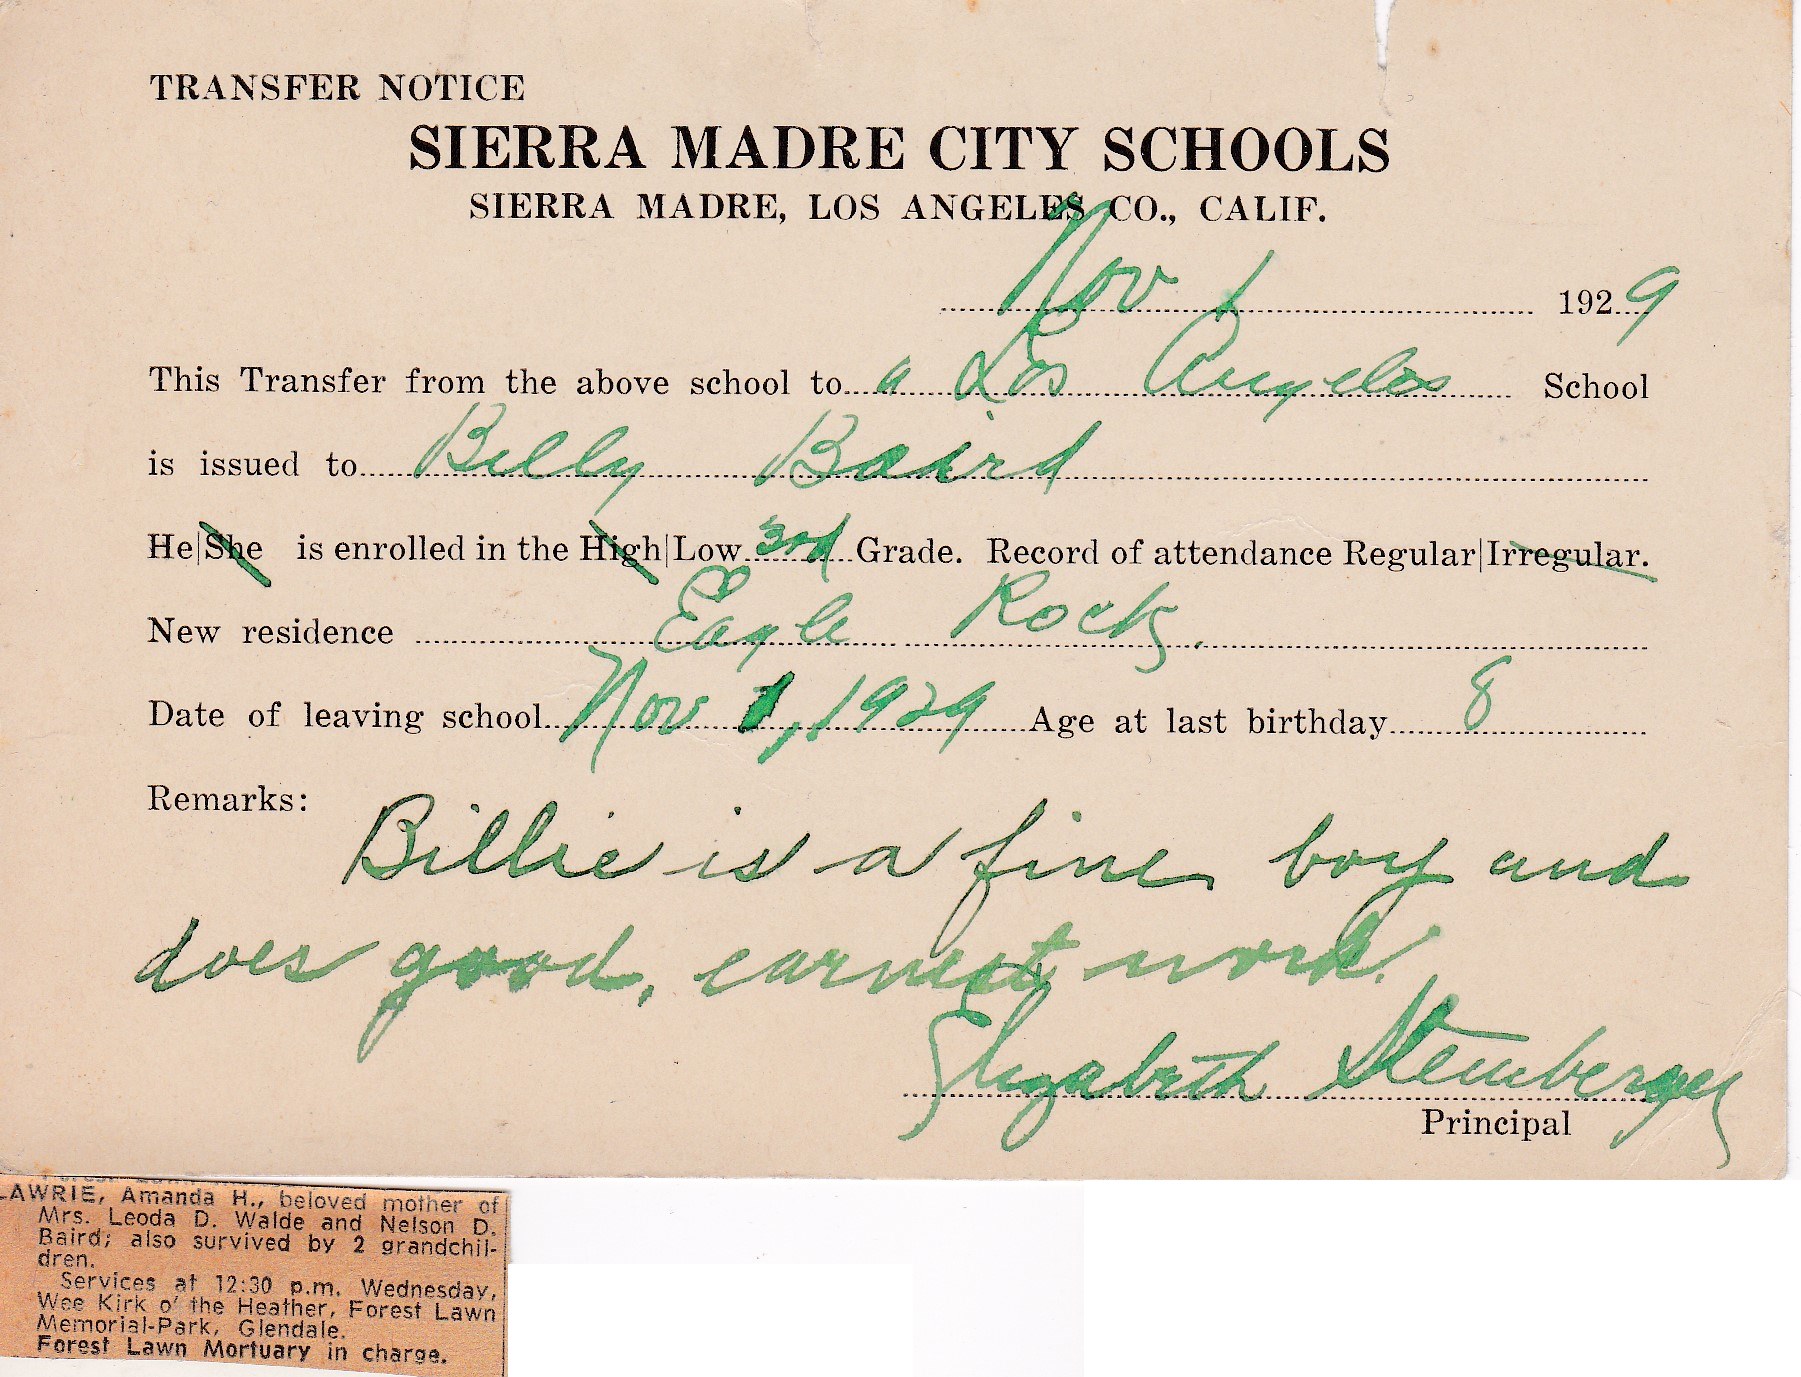 TRANSFER NOTICE
SIERRA MADRE CITY SCHOOLS
SIERRA MADRE, LOS ANGELES CO., CALIF.
Nov 1 1929
This Transfer from the above school to a Los Angeles School
is issued to Billy Baird
He|She is enrolled in the High|Low 3rd Grade. Record of attendance Regular|Irregular.
New residence Eagle Rock.
Date of leaving school Nov 1, 1929 Age at last birthday 8
Remarks:
Billie is a fine boy and
does good, earnest work.
Elizabeth Steinberger
Principal
LAWRIE, Amanda H., beloved mother of
Mrs. Leoda D. Walde and Nelson D.
Baird; also survived by 2 grandchil-
dren.
Services at 12:30 p.m. Wednesday,
Wee Kirk o' the Heather, Forest Lawn
Memorial-Park, Glendale.
Forest Lawn Mortuary in charge.